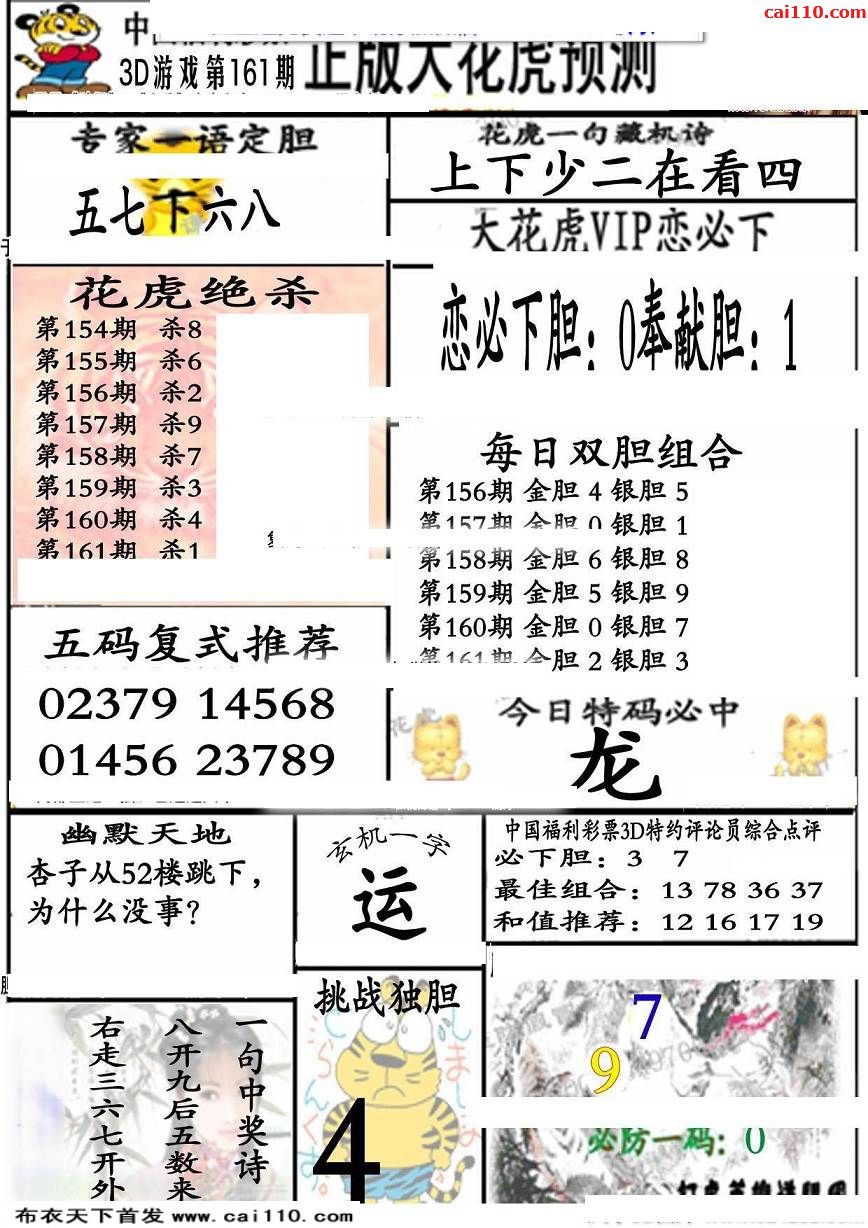 cai110.com
3D游戏第161期
正版大花虎预测
专家一语定胆
五七下六八
花虎一句藏机诗
上下少二在看四
大花虎VIP恋必下
恋必下胆：0奉献胆：1
花虎绝杀
第154期 杀8
第155期 杀6
第156期 杀2
第157期 杀9
第158期 杀7
第159期 杀3
第160期 杀4
第161期 杀1
每日双胆组合
第156期 金胆 4 银胆 5
第157期 金胆 0 银胆 1
第158期 金胆 6 银胆 8
第159期 金胆 5 银胆 9
第160期 金胆 0 银胆 7
第161期 金胆 2 银胆 3
五码复式推荐
02379 14568
01456 23789
花虎
今日特码必中
龙
幽默天地
杏子从52楼跳下，
为什么没事？
玄机一字
运
中国福利彩票3D特约评论员综合点评
必下胆：3 7
最佳组合：13 78 36 37
和值推荐：12 16 17 19
一句中奖诗
八开九后五数来
右走三六七开外
挑战独胆
4
7
9
必防一码：0
布衣天下首发 www.cai110.com